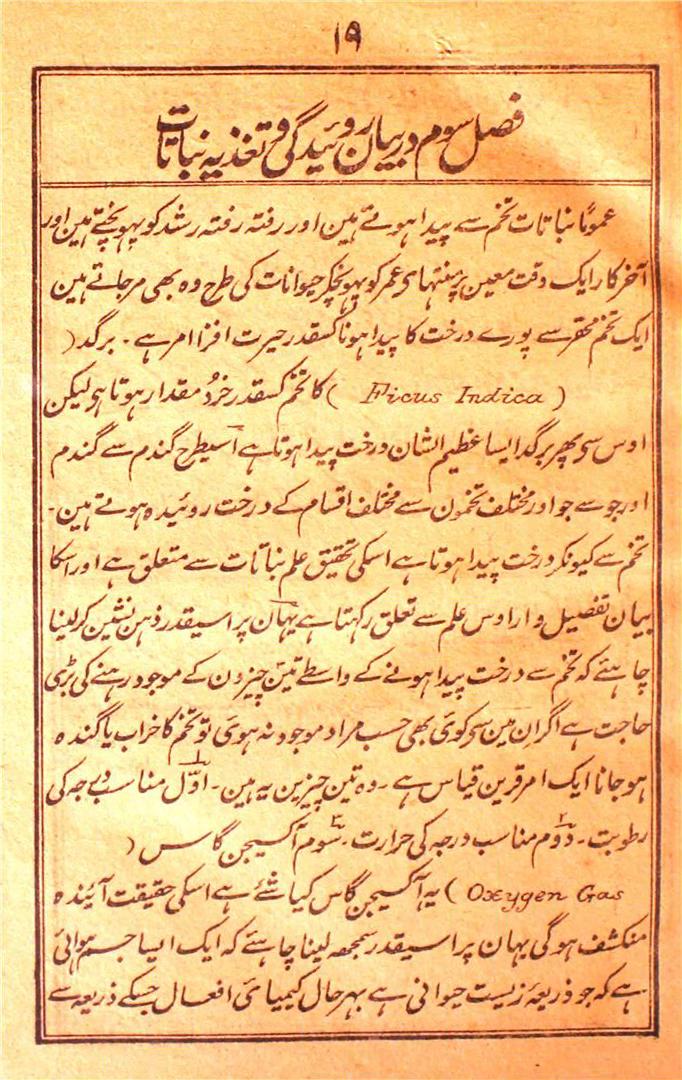 ۱۹
فصل سوم در بیان روئیدگی و تغذیہ نباتات
عموماً نباتات تخم سے پیدا ہوتے ہین اور رفتہ رفتہ رشد کو پہونچتے ہین اور
آخر کار ایک وقت معین پر منتہای عمر کو پہونچکر حیوانات کی طرح وہ بھی مرجاتے ہین
ایک تخم محقر سے پورے درخت کا پیدا ہونا کسقدر حیرت افزا امر ہے ۔ برگد (
Ficus Indica ) کا تخم کسقدر خرد مقدار ہوتا ہو لیکن
اوس سی پھر برگد ایسا عظیم الشان درخت پیدا ہوتا ہے اسیطرح گندم سے گندم
اور جو سے جو اور مختلف تخمون سے مختلف اقسام کے درخت روئیدہ ہوتے ہین ۔
تخم سے کیونکر درخت پیدا ہوتا ہے اسکی تحقیق علم نباتات سے متعلق ہے اور اسکا
بیان تفصیل وار اوس علم سے تعلق رکہتا ہے یہان پر اسیقدر ذہن نشین کر لینا
چاہئے کہ تخم سے درخت پیدا ہونے کے واسطے تین چیزون کے موجود رہنے کی بڑی
حاجت ہے اگر ان مین سی کوئی بھی حسب مراد موجود نہ ہوی تو تخم کا خراب یا گندہ
ہو جانا ایک امر قرین قیاس ہے ۔ وہ تین چیزین یہ ہین ۔ اوّل مناسب درجہ کی
رطوبت ۔ دوم مناسب درجہ کی حرارت ۔ سوم آکسیجن گاس (
Oxygen Gas ) یہ آکسیجن گاس کیا شئے ہے اسکی حقیقت آیندہ
منکشف ہو گی یہان پر اسیقدر سمجھ لینا چاہئے کہ ایک ایسا جسم ہوائی
ہے کہ جو ذریعۂ زیست حیوانی ہے بہر حال کیمیائی افعال جسکے ذریعہ سے